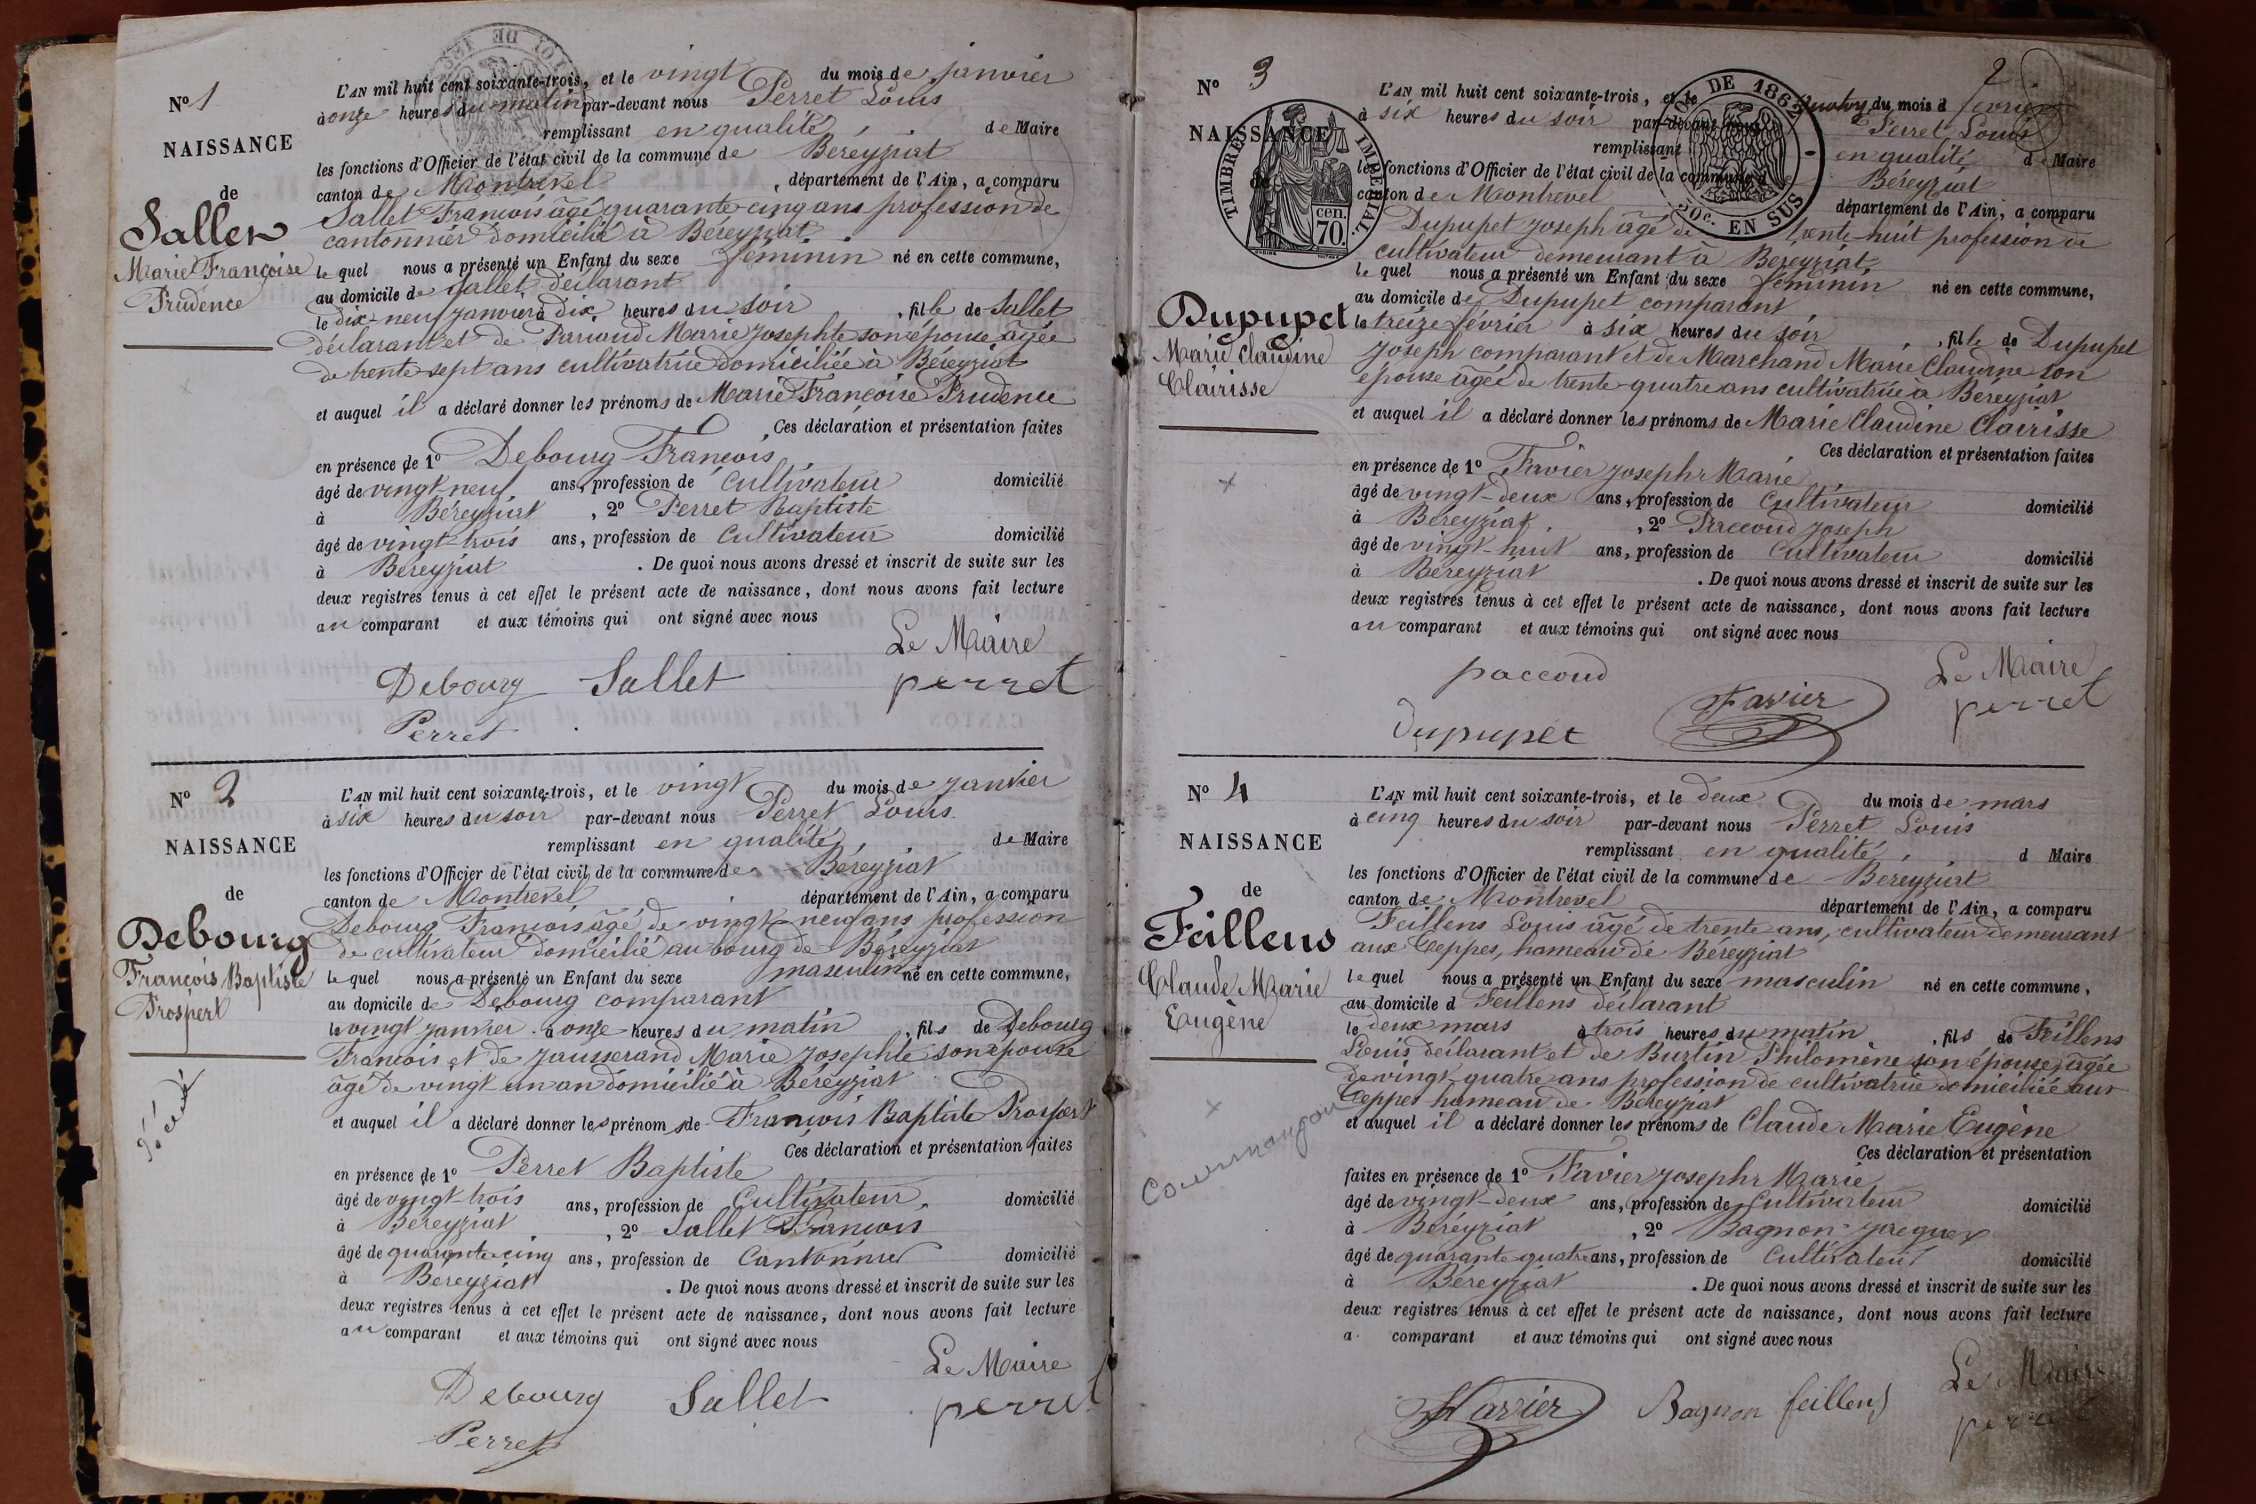 N° 1
NAISSANCE
de
Sallet
Marie Françoise
Prudence
L'AN mil huit cent soixante-trois, et le vingt du mois de janvier
à onze heures du matin par-devant nous Perret Louis
remplissant en qualité de Maire
les fonctions d'Officier de l'état civil de la commune de Béreyziat
canton de Montrevel, département de l'Ain, a comparu
Sallet François âgé quarante cinq ans profession de
cantonnier domicilié à Béreyziat
le quel nous a présenté un Enfant du sexe féminin né en cette commune,
au domicile de Sallet déclarant
le dix-neuf janvier à dix heures du soir, fille de Sallet
déclarant et de Marie Josephte son épouse âgée
de trente sept ans cultivatrice domiciliée à Béreyziat
et auquel il a déclaré donner les prénoms de Marie Françoise Prudence
Ces déclaration et présentation faites
en présence de 1° Debourg François
âgé de vingt neuf ans, profession de Cultivateur domicilié
à Béreyziat, 2° Perret Baptiste
âgé de vingt trois ans, profession de Cultivateur domicilié
à Béreyziat. De quoi nous avons dressé et inscrit de suite sur les
deux registres tenus à cet effet le présent acte de naissance, dont nous avons fait lecture
au comparant et aux témoins qui ont signé avec nous
Le Maire
Debourg Sallet perret
Perret
N° 2
NAISSANCE
de
Debourg
François Baptiste
Prospert
L'AN mil huit cent soixante-trois, et le vingt du mois de janvier
à six heures du soir par-devant nous Perret Louis
remplissant en qualité de Maire
les fonctions d'Officier de l'état civil de la commune de Béreyziat
canton de Montrevel département de l'Ain, a comparu
Debourg François âgé de vingt neuf ans profession
de cultivateur domicilié au bourg de Béreyziat
le quel nous a présenté un Enfant du sexe masculin né en cette commune,
au domicile de Debourg comparant
le vingt janvier à onze heures du matin, fils de Debourg
François et de Jausserand Marie Josephte son épouse
âgé de vingt un an domicilié à Béreyziat
et auquel il a déclaré donner les prénoms de François Baptiste Prospert
Ces déclaration et présentation faites
en présence de 1° Perret Baptiste
âgé de vingt trois ans, profession de Cultivateur domicilié
à Béreyziat, 2° Sallet François
âgé de quarante cinq ans, profession de Cantonnier domicilié
à Béreyziat. De quoi nous avons dressé et inscrit de suite sur les
deux registres tenus à cet effet le présent acte de naissance, dont nous avons fait lecture
au comparant et aux témoins qui ont signé avec nous
Le Maire
Debourg Sallet perret
Perret
2
N° 3
NAISSANCE
de
TIMBRE IMPÉRIAL.
70 cen.
DE 1862
EN SUS
Dupupet
Marie Claudine
Clairisse
L'AN mil huit cent soixante-trois, et le du mois d février
à six heures du soir par-devant nous Perret Louis
remplissant en qualité d Maire
les fonctions d'Officier de l'état civil de la commune Béreyziat
canton de Montrevel département de l'Ain, a comparu
Dupupet Joseph âgé de trente-huit profession de
cultivateur demeurant à Béreyziat
le quel nous a présenté un Enfant du sexe féminin né en cette commune,
au domicile de Dupupet comparant
le treize février à six heures du soir, fille de Dupupet
Joseph comparant et de Marchand Marie Claudine son
épouse âgée de trente-quatre ans cultivatrice à Béréyziat
et auquel il a déclaré donner les prénoms de Marie Claudine Clairisse
Ces déclaration et présentation faites
en présence de 1° Favier Josephr Marie
âgé de vingt-deux ans, profession de Cultivateur domicilié
à Béreyziat, 2° Paccoud Joseph
âgé de vingt-huit ans, profession de Cultivateur domicilié
à Béreyziat. De quoi nous avons dressé et inscrit de suite sur les
deux registres tenus à cet effet le présent acte de naissance, dont nous avons fait lecture
au comparant et aux témoins qui ont signé avec nous
paccoud Le Maire
Dupupet Favier perret
N° 4
NAISSANCE
de
Feillens
Claude Marie
Eugène
Cournangoux
L'AN mil huit cent soixante-trois, et le deux du mois de mars
à cinq heures du soir par-devant nous Perret Louis
remplissant en qualité d Maire
les fonctions d'Officier de l'état civil de la commune de Béreyziat
canton de Montrevel département de l'Ain, a comparu
Feillens Louis âgé de trente ans, cultivateur demeurant
aux Teppes, hameau de Béreyziat
le quel nous a présenté un Enfant du sexe masculin né en cette commune,
au domicile d Feillens déclarant
le deux mars à trois heures du matin, fils de Feillens
Louis déclarant et de Burtin Philomène son épouse, âgée
de vingt quatre ans profession de cultivatrice domiciliée aux
Teppes hameau de Béreyziat
et auquel il a déclaré donner les prénoms de Claude Marie Eugène
Ces déclaration et présentation
faites en présence de 1° Favier Josephr Marie
âgé de vingt-deux ans, profession de Cultivateur domicilié
à Béréyziat, 2° Bagnon Jacques
âgé de quarante quatre ans, profession de Cultivateur domicilié
à Béreyziat. De quoi nous avons dressé et inscrit de suite sur les
deux registres tenus à cet effet le présent acte de naissance, dont nous avons fait lecture
a comparant et aux témoins qui ont signé avec nous
Le Maire
Favier Bagnon feillens perret